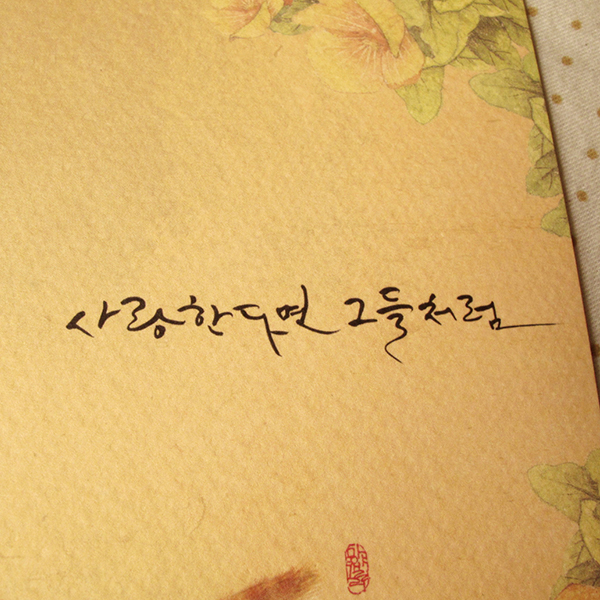 사랑한다면 그들처럼